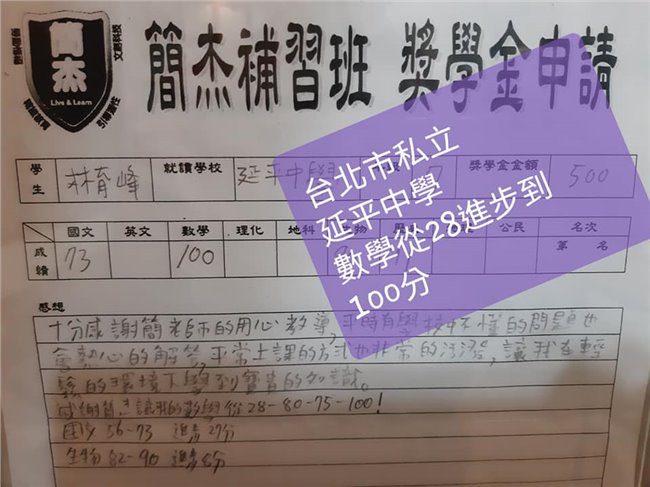 簡杰
Live & Learn
簡杰補習班 獎學金申請
台北市私立
延平中學
數學從28進步到
100分
學生 林育峰 就讀學校 延平中學 獎學金金額 500
成績 國文 英文 數學 理化 地科 公民 名次
73 100 第 名
感想
十分感謝簡老師的用心教導,平時有學校中不懂的問題也
會熱心的解答,平常上課的方式也非常的活潑,讓我在輕
鬆的環境下學到寶貴的知識。
感謝簡杰讓我的數學從28-80-75-100!
國文 56-73 進步27分
生物 82-90 進步8分